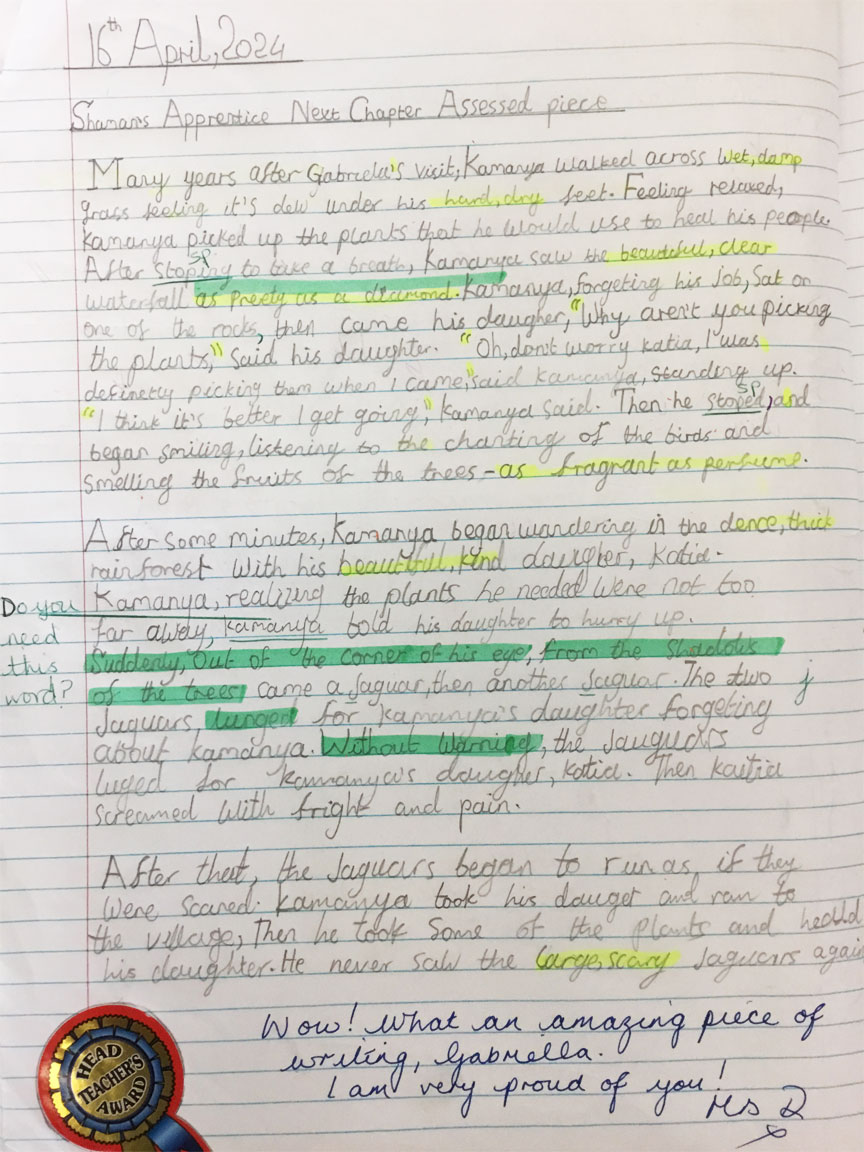 16th April, 2024
Shaman's Apprentice Next Chapter Assessed piece
Many years after Gabriela's visit, Kamanya walked across wet, damp
grass feeling it's dew under his hard, dry feet. Feeling relaxed,
Kamanya picked up the plants that he would use to heal his people.
sp
After stoping to take a breath, Kamanya saw the beautiful, clear
waterfall as preety as a diamond. Kamanya, forgeting his job, sat on
one of the rocks, then came his daugher, "Why aren't you picking
the plants," said his daughter. "Oh, don't worry Katia, I was
definetly picking them when I came," said Kamanya, standing up.
sp
"I think it's better I get going," Kamanya said. Then he stoped, and
began smiling, listening to the chanting of the birds and
smelling the fruits of the trees - as fragrant as perfume.
After some minutes, Kamanya began wandering in the dence, thick
rainforest with his beautiful, kind daugher, Katia.
Kamanya, realizing the plants he needed were not too
far away, Kamanya told his daughter to hurry up.
Do you
need
this
word?
Suddenly, out of the corner of his eye, from the shadows
of the trees came a Jaguar, then another Jaguar. The two j
Jaguars lunged for Kamanya's daughter forgeting
about Kamanya. Without warning, the Jauguars
luged for Kamanya's daugher, Katia. Then Kaitia
screamed with fright and pain.
After that, the Jaguars began to run as if they
were scared. Kamanya took his dauget and ran to
the village, Then he took some of the plants and
his daughter. He never saw the large, scary Jaguars again
Wow! What an amazing piece of
writing, Gabriella.
I am very proud of you!
Ms R
x
HEAD
TEACHER'S
AWARD